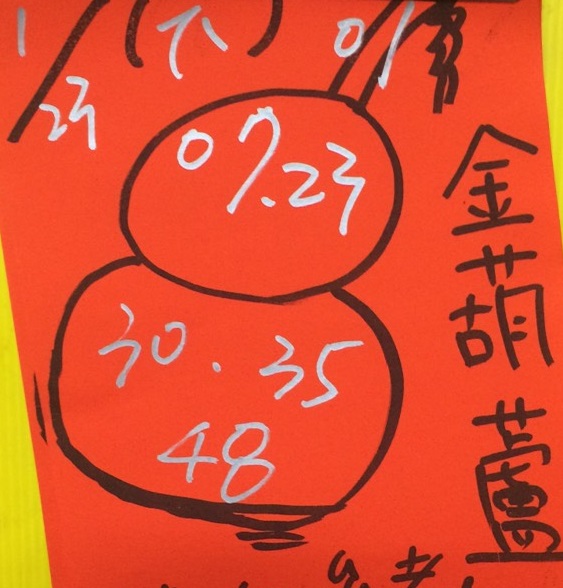 1/23 (六) 01
07.23
30.35
48
金葫蘆
參考